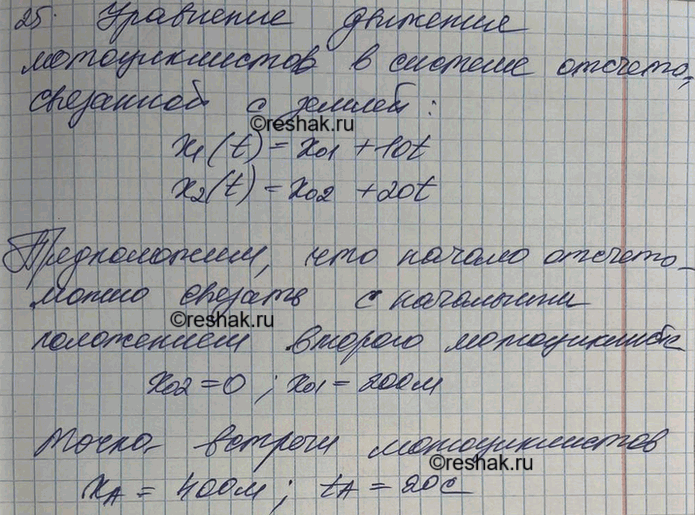 25. Уравнение движение
мотоциклистов в системе отсчета,
связанной с землей:
©reshak.ru
x₁(t) = x₀₁ + 10t
x₂(t) = x₀₂ + 20t
Предположим, что начало отсчета
можно связать с начальным
©reshak.ru
положением второго мотоциклиста
x₀₂ = 0 ; x₀₁ = 200м
Точка встречи мотоциклистов
©reshak.ru
xA = 400м ; tA = 20с